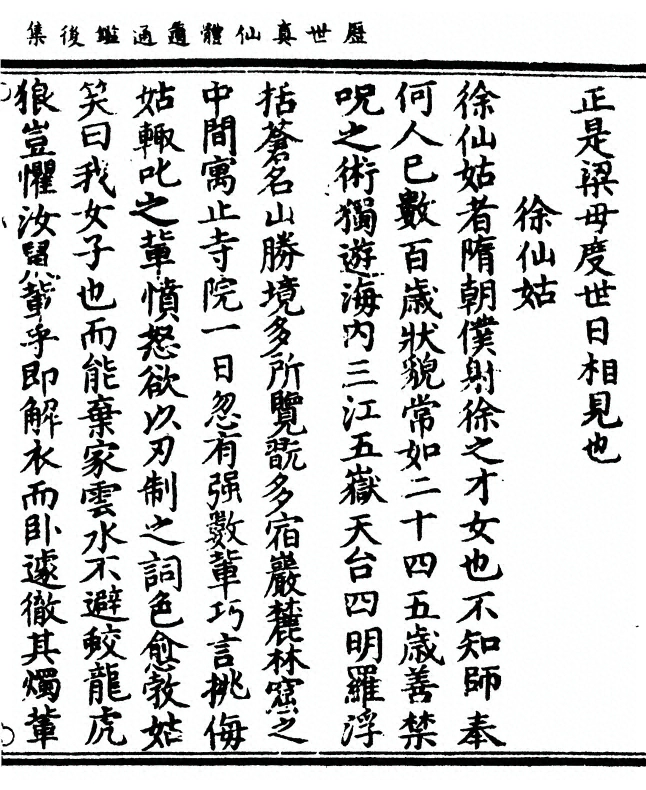 歷世真仙體道通鑑後集
正是梁母度世日相見也
徐仙姑
徐仙姑者隋朝僕射徐之才女也不知師奉
何人已數百歲狀貌常如二十四五歲善禁
呪之術獨遊海內三江五嶽天台四明羅浮
括蒼名山勝境多所覽翫多宿巖麓林窟之
中間寓止寺院一日忽有强數輩巧言挑侮
姑輙叱之輩憤怒欲以刃制之詞色愈姑
笑曰我女子也而能棄家雲水不避蛟龍虎
狼豈懼汝鼠輩乎即解衣而卧遽徹其燭輩